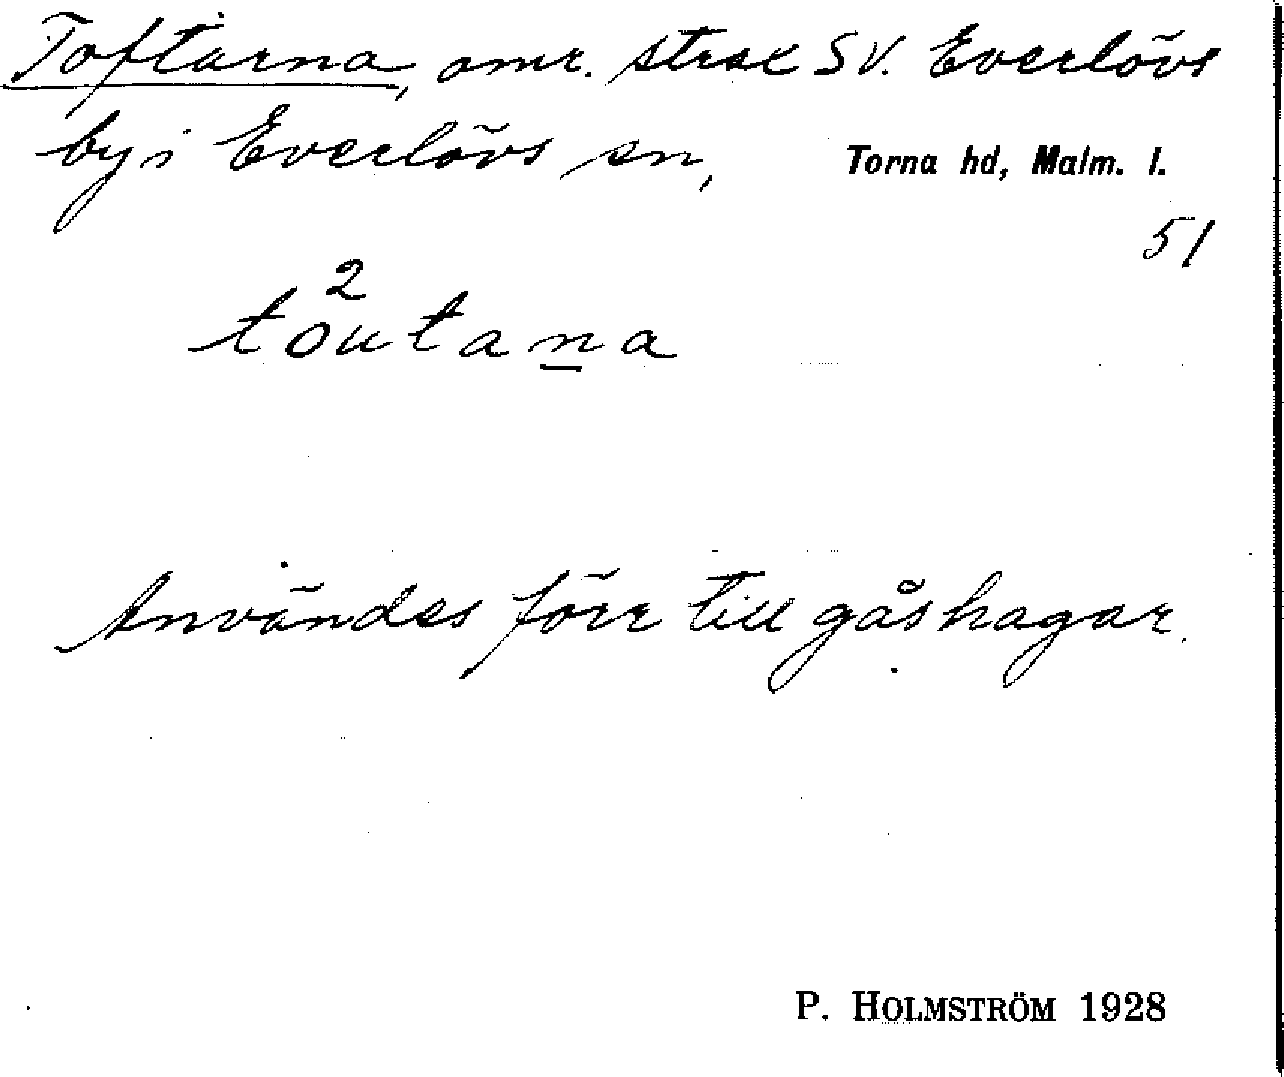 Toftarna, omr. strax SV. Everlövs
by i Everlövs sn, Torna hd, Malm. l.
51
2
töutana
Användes förr till gåshagar.
P. HOLMSTRÖM 1928